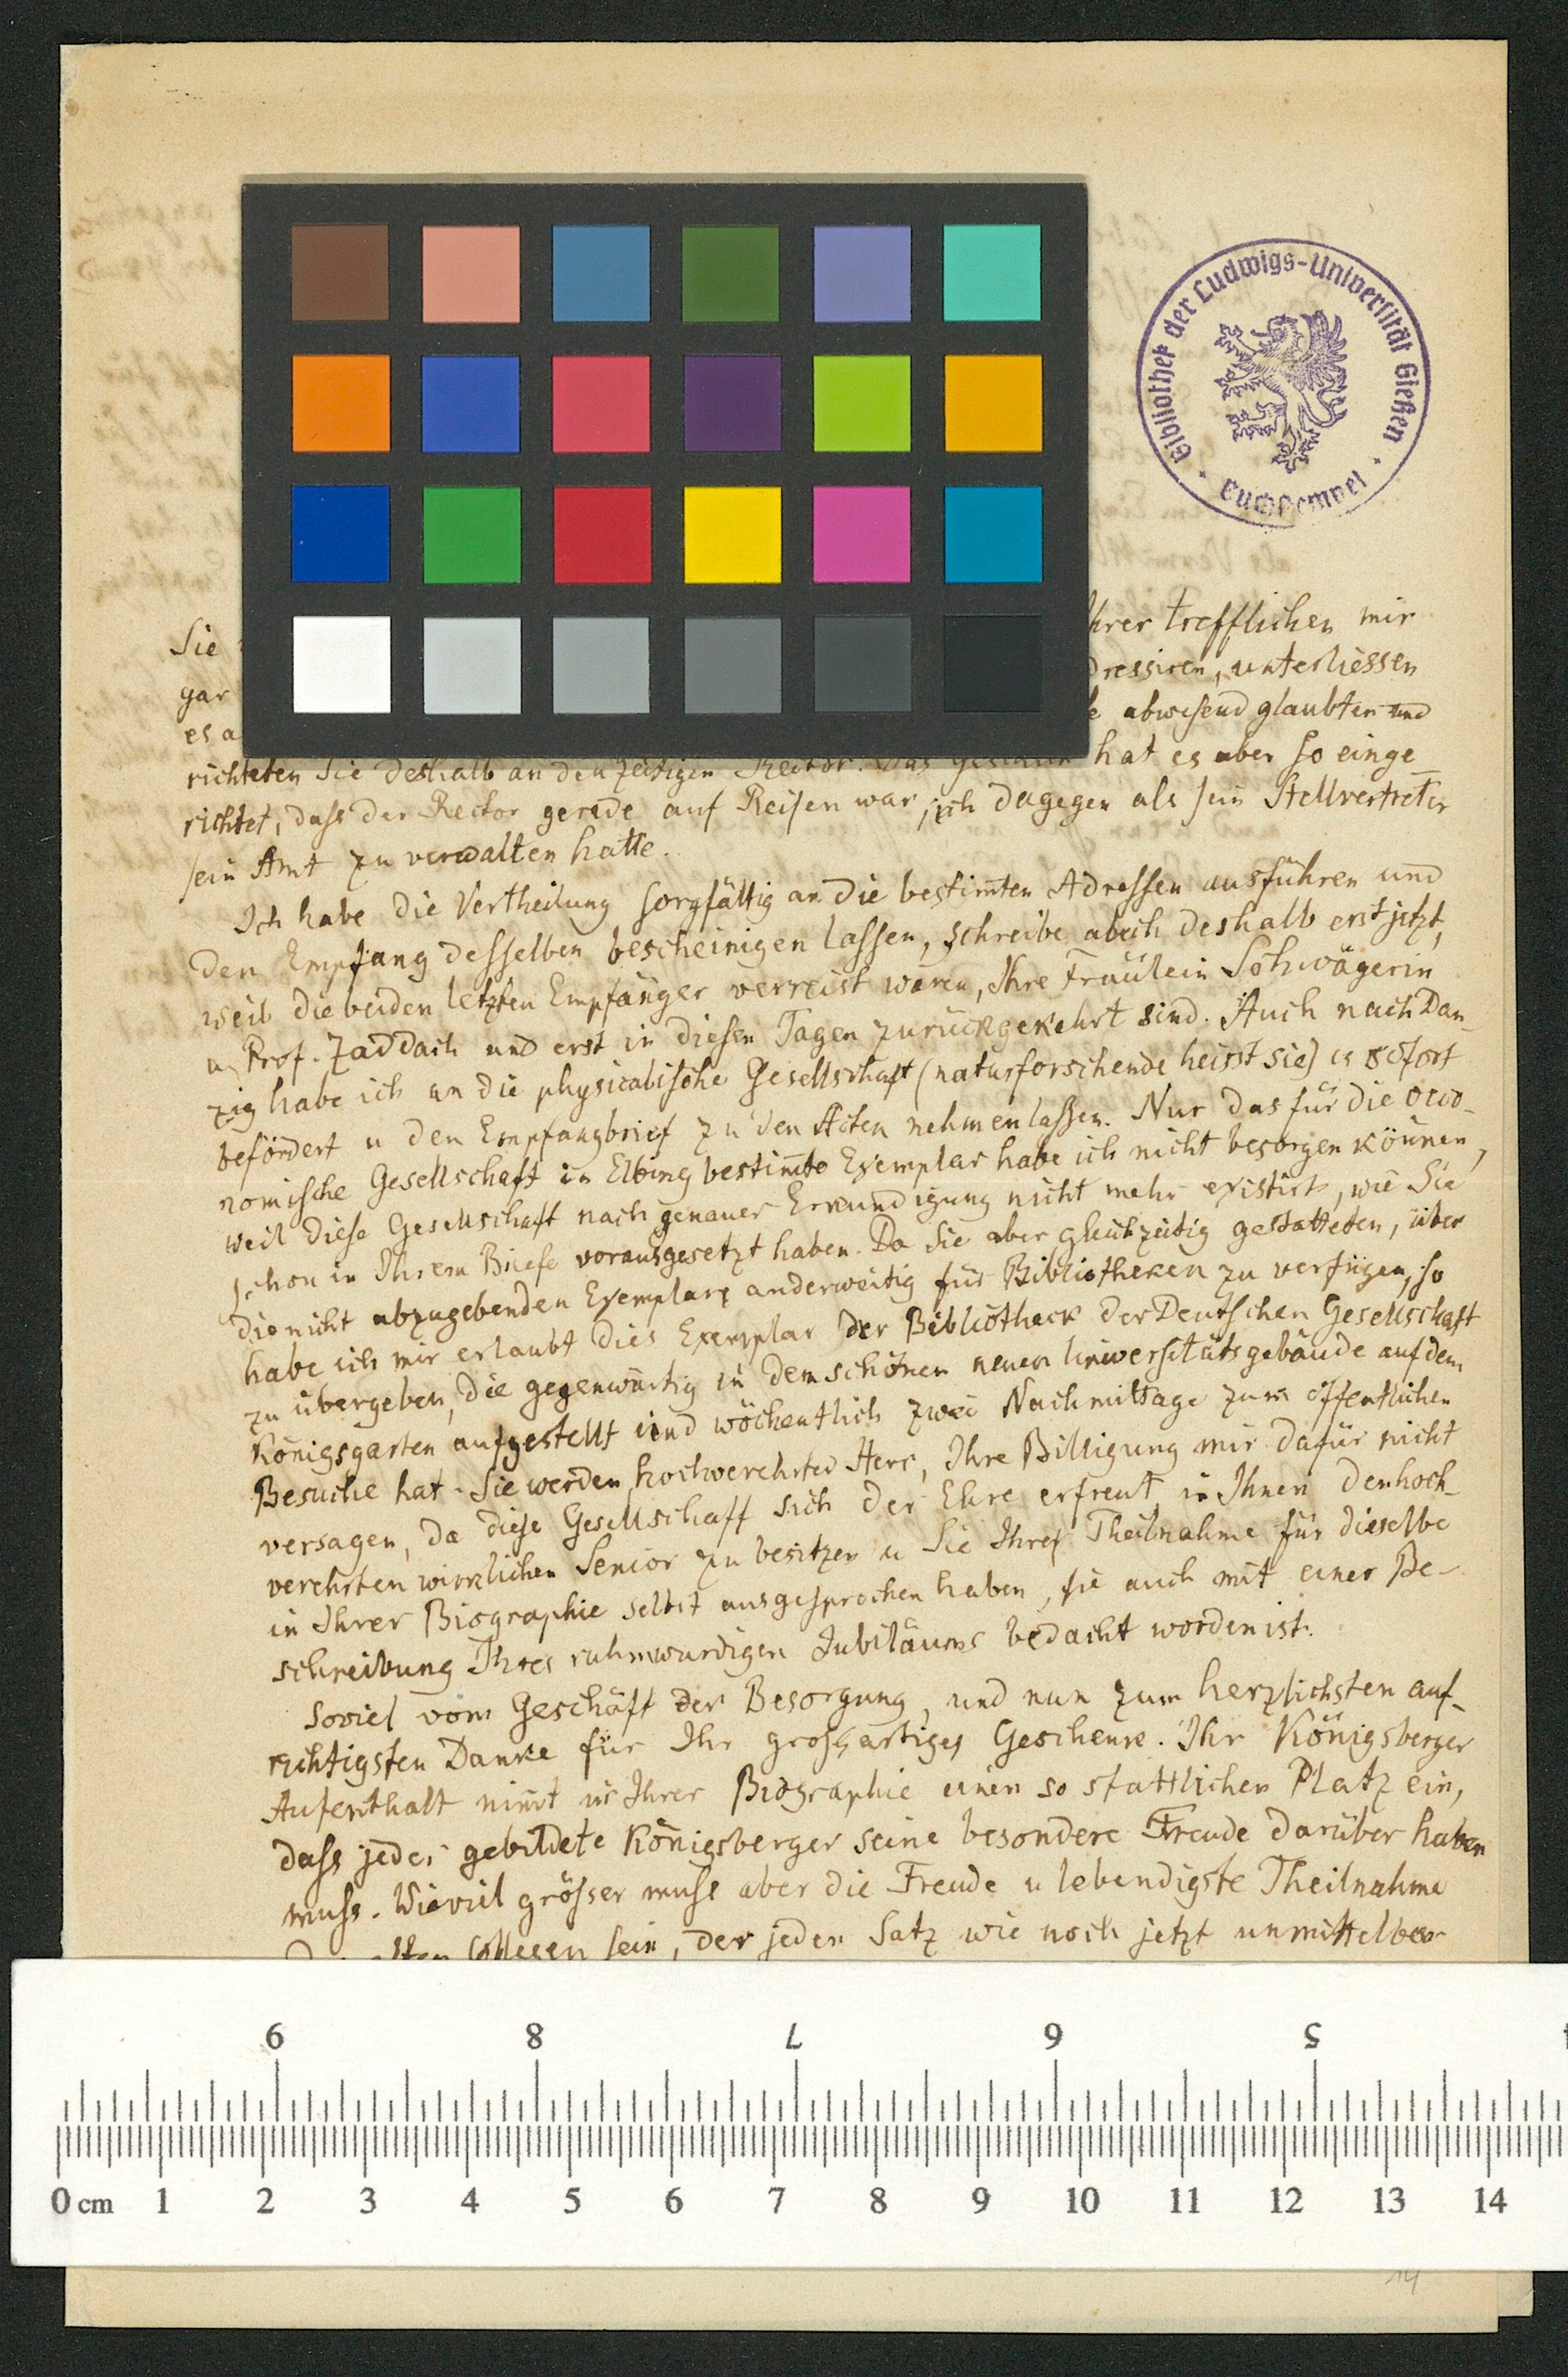 Bibliothek der Ludwigs-Universität Gießen
Sie
Ihrer trefflichen mir
gar
dressiren, unterliessen
es a
abwesend glaubten und
richteten Sie deshalb an den zeitigen Rector. Das Geschick hat es aber so einge
richtet, dass der Rector gerade auf Reisen war, ich dagegen als sein Stellvertreter
sein Amt zu verwalten hatte.
Ich habe die Vertheilung sorgfältig an die bestim̄ten Adressen ausführen und
den Empfang desselben bescheinigen lassen, schreibe deshalb erst jetzt,
weil die beiden letzten Empfänger verreist waren, Ihre Fräulein Schwägerin
u Prof. Zaddach und erst in diesen Tagen zurückgekehrt sind. Auch nach Dan-
zig habe ich an die physicalische Gesellschaft (naturforschende heisst sie) es sofort
befördert u den Empfangbrief zu den Acten nehmen lassen. Nur das für die oeco-
nomische Gesellschaft in Elbing bestim̄te Exemplar habe ich nicht besorgen können,
weil diese Gesellschaft nach genauer Erkundigung nicht mehr existirt, wie Sie
schon in Ihrem Briefe vorausgesetzt haben. Da Sie aber gleichzeitig gestatteten, über
die nicht abzugebenden Exemplare anderweitig für Bibliotheken zu verfügen, so
habe ich mir erlaubt dies Exemplar der Bibliotheck der Deutschen Gesellschaft
zu übergeben, die gegenwärtig in dem schönen neuen Universitätsgebäude auf dem
Königsgarten aufgestellt und wöchentlich zwei Nachmittage zum öffentlichen
Besuche hat. Sie werden, hochverehrter Herr, Ihre Billigung mir dafür nicht
versagen, da diese Gesellschaft sich der Ehre erfreut in Ihnen den hoch-
verehrten wirklichen Senior zu besitzen u Sie Ihrer Theilnahme für dieselbe
in Ihrer Biographie selbst ausgesprochen haben, sie auch mit einer Be-
schreibung Ihres ruhmwürdigen Jubiläums bedacht worden ist.
Soviel vom Geschäft der Besorgung, und nun zum herzlichsten auf-
richtigsten Danke für Ihr grossartiges Geschenk. Ihr Königsberger
Aufenthalt nim̄t in Ihrer Biographie einen so stattlichen Platz ein,
dass jeder gebildete Königsberger seine besondere Freude darüber haben
muss. Wieviel grösser muss aber die Freude u lebendigste Theilnahme
Collegen sein, der jeden Satz wie noch jetzt unmittelbar
9 8 7 6 5
0 cm 1 2 3 4 5 6 7 8 9 10 11 12 13 14
14